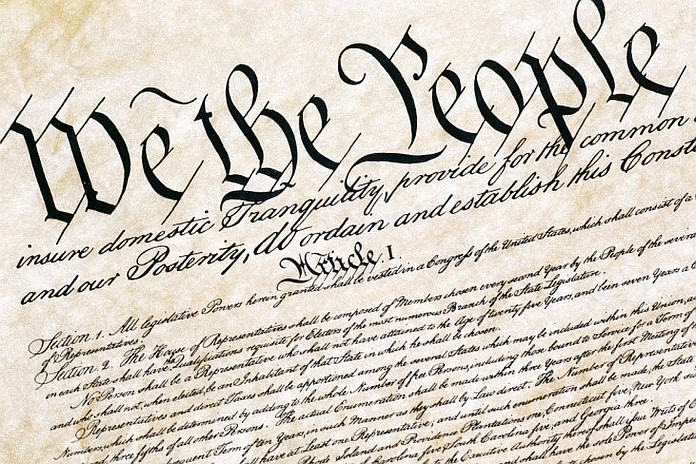 We the People
insure domestic Tranquility, provide for the common
and our Posterity, do ordain and establish this Const
Article. I.
Section. 1. All legislative Powers herein granted shall be vested in a Congress of the United States, which shall consist of a
of Representatives.
Section. 2. The House of Representatives shall be composed of Members chosen every second Year by the People of the several
in each State shall have the Qualifications requisite for Electors of the most numerous Branch of the State Legislature.
No Person shall be a Representative who shall not have attained to the Age of twenty five Years, and been seven Years a
and who shall not, when elected, be an Inhabitant of that State in which he shall be chosen.
Representatives and direct Taxes shall be apportioned among the several States which may be included within this Union,
Numbers, which shall be determined by adding to the whole Number of free Persons, including those bound to Service for a Term of
three fifths of all other Persons. The actual Enumeration shall be made within three Years after the first Meeting of
subsequent Term of ten Years, in such Manner as they shall by Law direct. The Number of Representatives
shall have at Least one Representative; and until such enumeration shall be made, the State
Rhode Island and Providence Plantations one, Connecticut five, New York
Carolina five, South Carolina five, and Georgia three.
the Executive Authority thereof shall issue Writs of
shall have the sole Power of